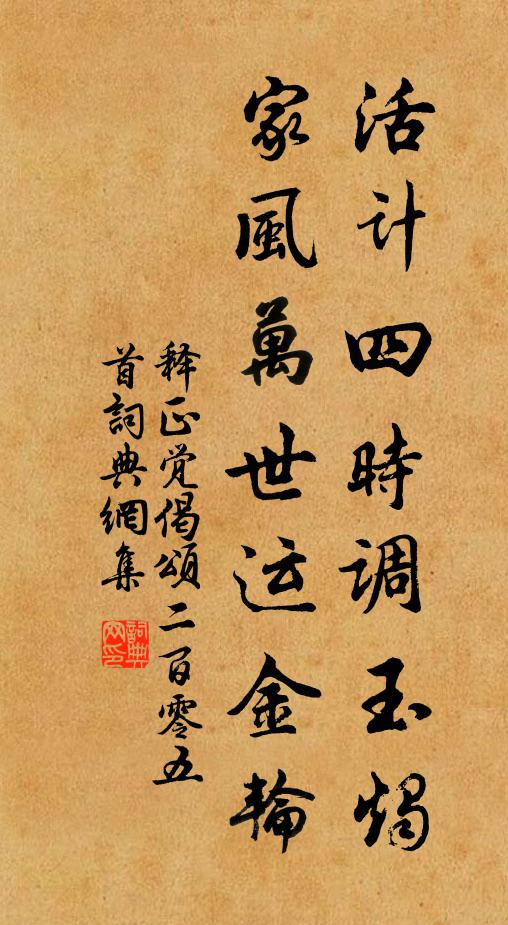 活计四時调玉燭
家風萬世运金輪
释正觉偈頌二百零五
首詞典網集
詞典网印